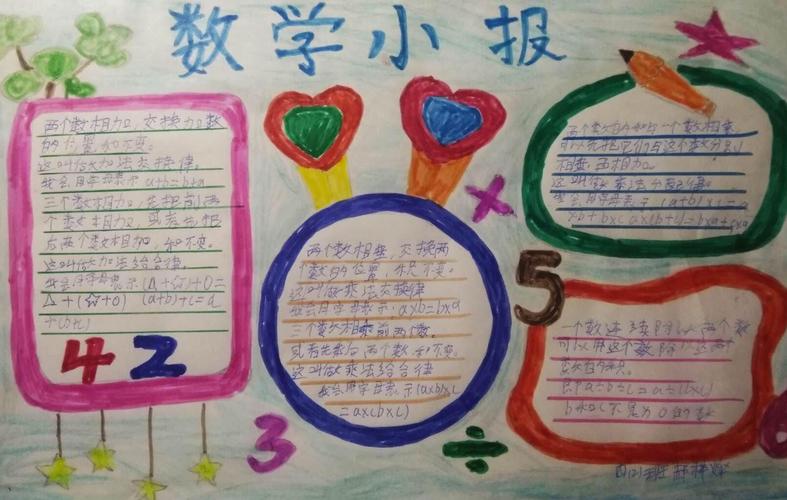 数学小报
两个数相加,交换加数
的位置,和不变。
这叫做加法交换律。
我会用字母表示a+b=b+a
三个数相加,先把前两
个数相加,或者先把
后两个数相加,和不变。
这叫做加法结合律。
我会用字母表示(△+☆)+O=
△+(☆+O) (a+b)+c=a
+(b+c)
4 2
两个数相乘,交换两
个数的位置,积不变。
这叫做乘法交换律
我会用字母表示:a×b=b×a
三个数相乘前两个数,
或者先乘后两个数,不变。
这叫做乘法结合律
我会用字母表示(a×b)×c
=a×(b×c)
3
×
÷
两个数的和与一个数相乘
可以先把它们与这个数分别
相乘再相加。
这叫做乘法分配律。
我会用字母表示(a+b)×c=a
5
一个数连续除以两个数
可以用这个数除以这两
个数的积。
即a÷b÷c=a÷(b×c)
b和c不是为0的数
四(2)班